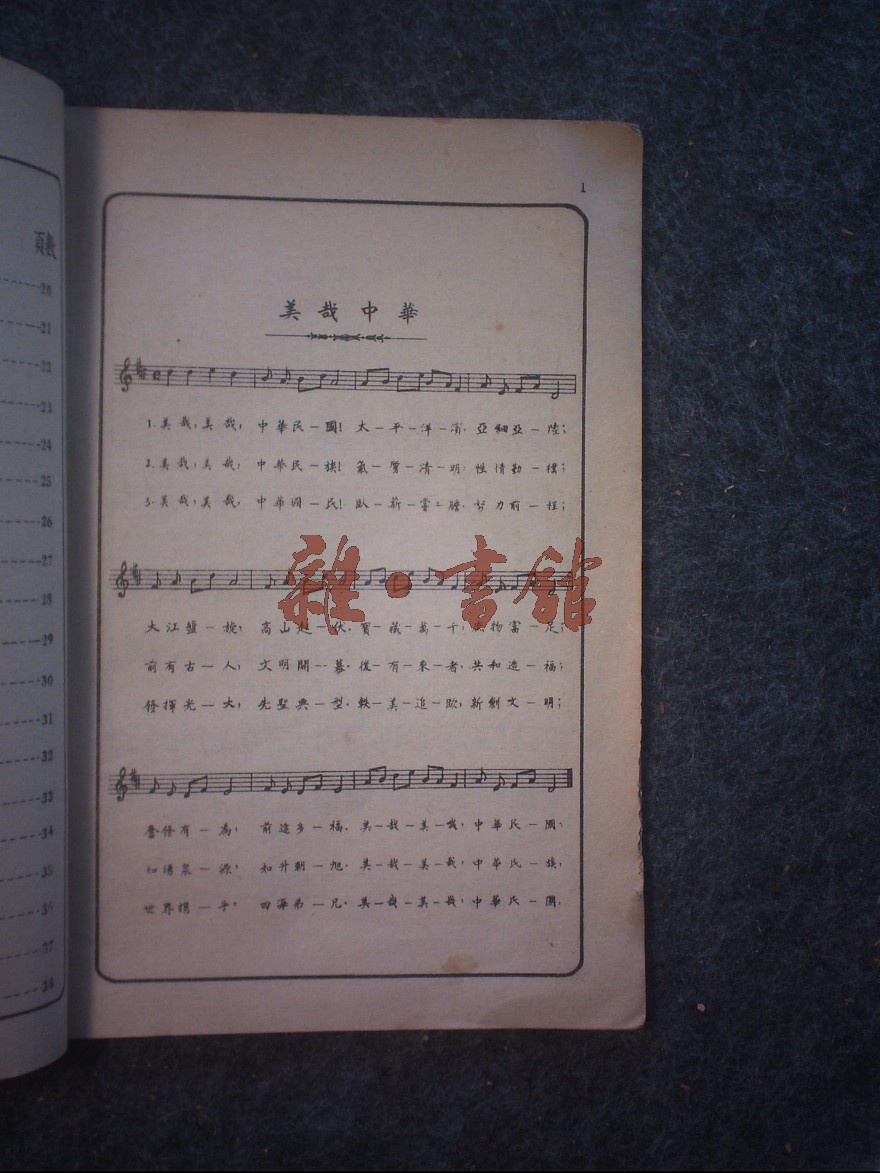 頁數
20
21
22
23
24
25
26
27
28
29
30
31
32
33
34
35
36
37
38
1
美哉中華
1.美哉,美哉,中華民-國!太-平-洋-濱,亞細亞-陸;
2.美哉,美哉,中華民-族!氣-質-清-明,性情勤-樸;
3.美哉,美哉,中華國-民!臥-薪-嘗-膽,努力前-程;
雜·書館
大江盤-旋,高山起-伏.寶-藏-萬-千,物富-足;
前有古-人,文明開-幕.後-有-來-者,共和造-福;
發揮光-大,先聖典-型.軼-美-追-歐,新創文-明;
奮發有-為,前途多-福.美-哉-美-哉,中華民-國.
如湧泉-源,如升朝-旭.美-哉-美-哉,中華民-族,
世界携-手,四海弟-兄.美-哉-美-哉,中華民-國.